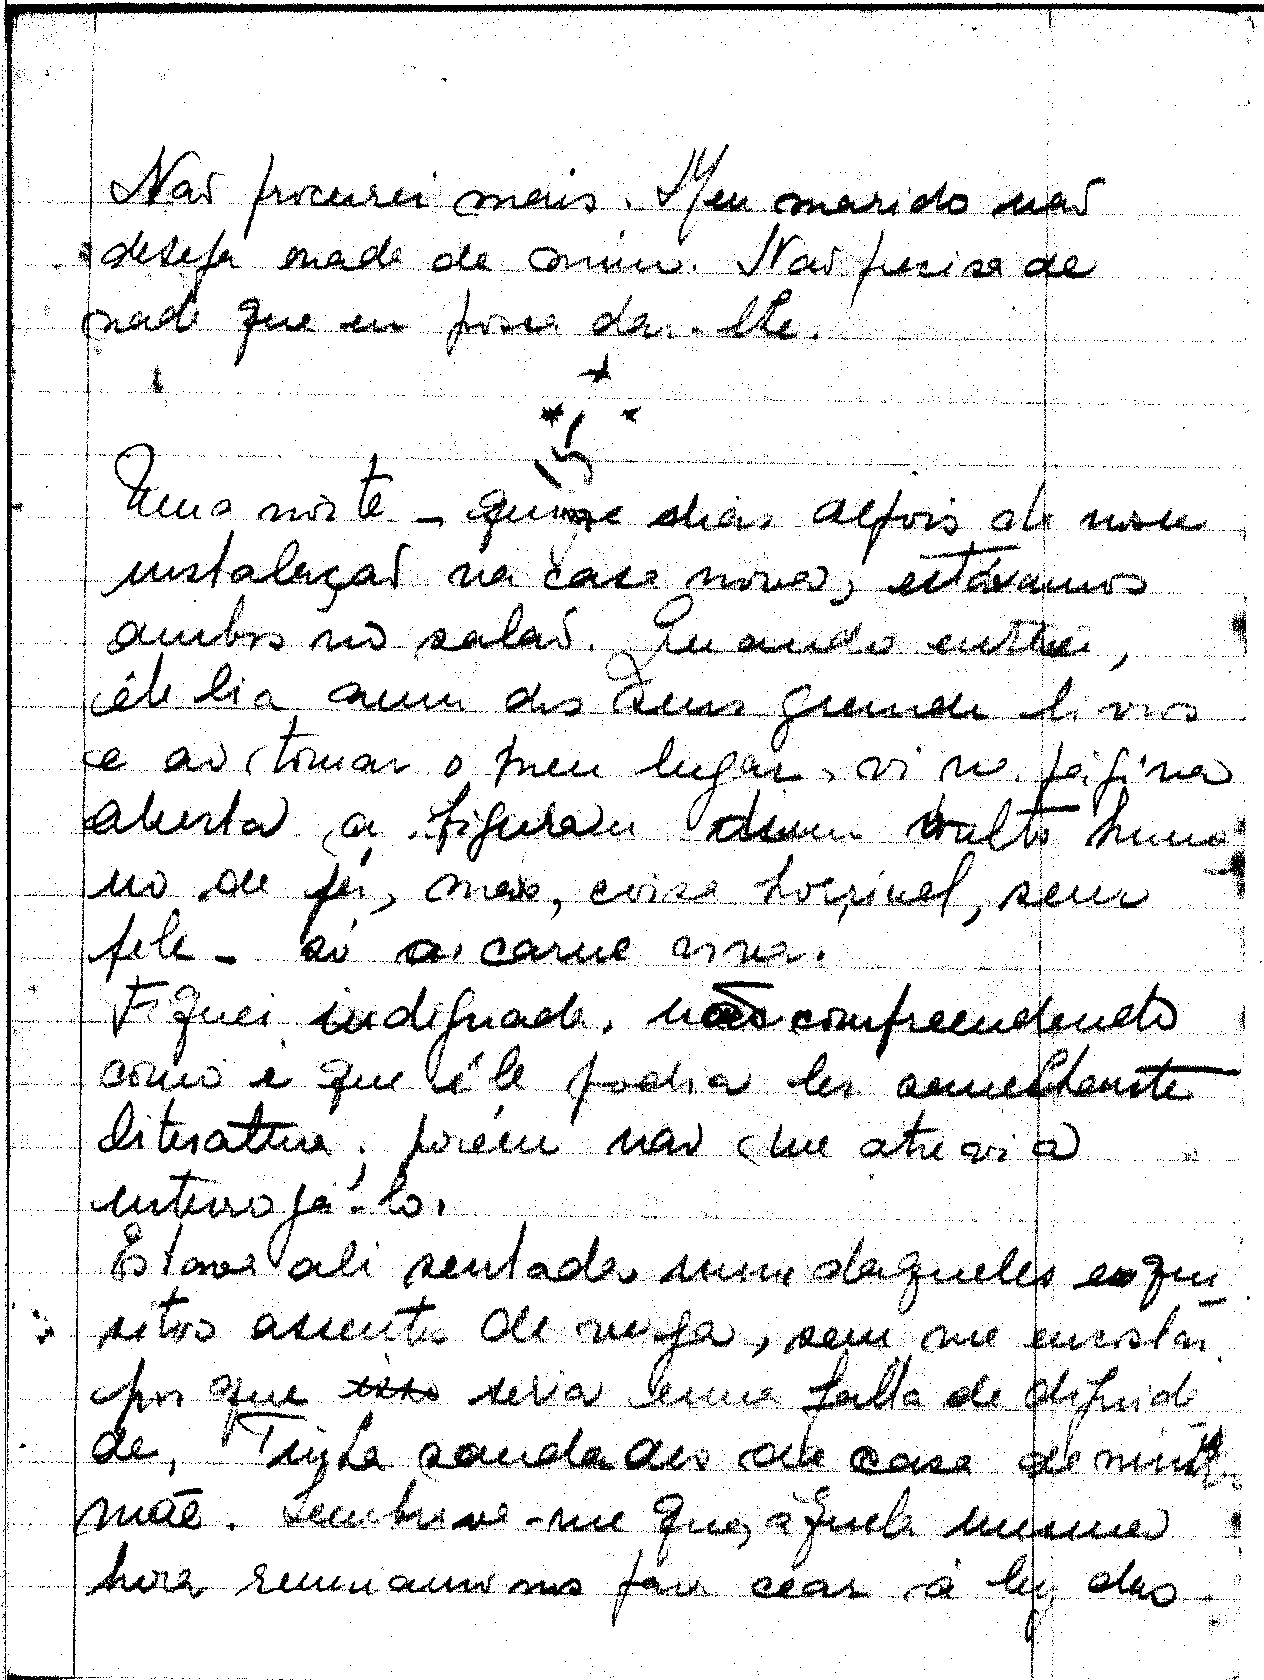 Não procurei mais. Meu marido não
deseja nada de mim. Não precisa de
nada que eu possa dar-lhe.
* * *
Uma noite – quinze dias depois de nossa
instalação na casa nova, estávamos
ambos no salão. Quando entrei,
êle lia num dos seus grandes livros
e ao tomar o meu lugar, vi na página
aberta a figura dum vulto huma
no de pé, mas, coisa horrivel, sem
pele – só a carne viva.
Fiquei indignada, não compreendendo
como é que êle podia ler semelhante
literatura; porém não me atrevi a
interrogá-lo.
Estava ali sentada num daqueles esqui
sitos assentos de verga, sem me encostar
porque isso seria uma falta de dignida
de, Tinha saudades da casa de minha
mãe. Lembrava-me que, àquela mesma
hora, reuniamo nos para cear à luz das